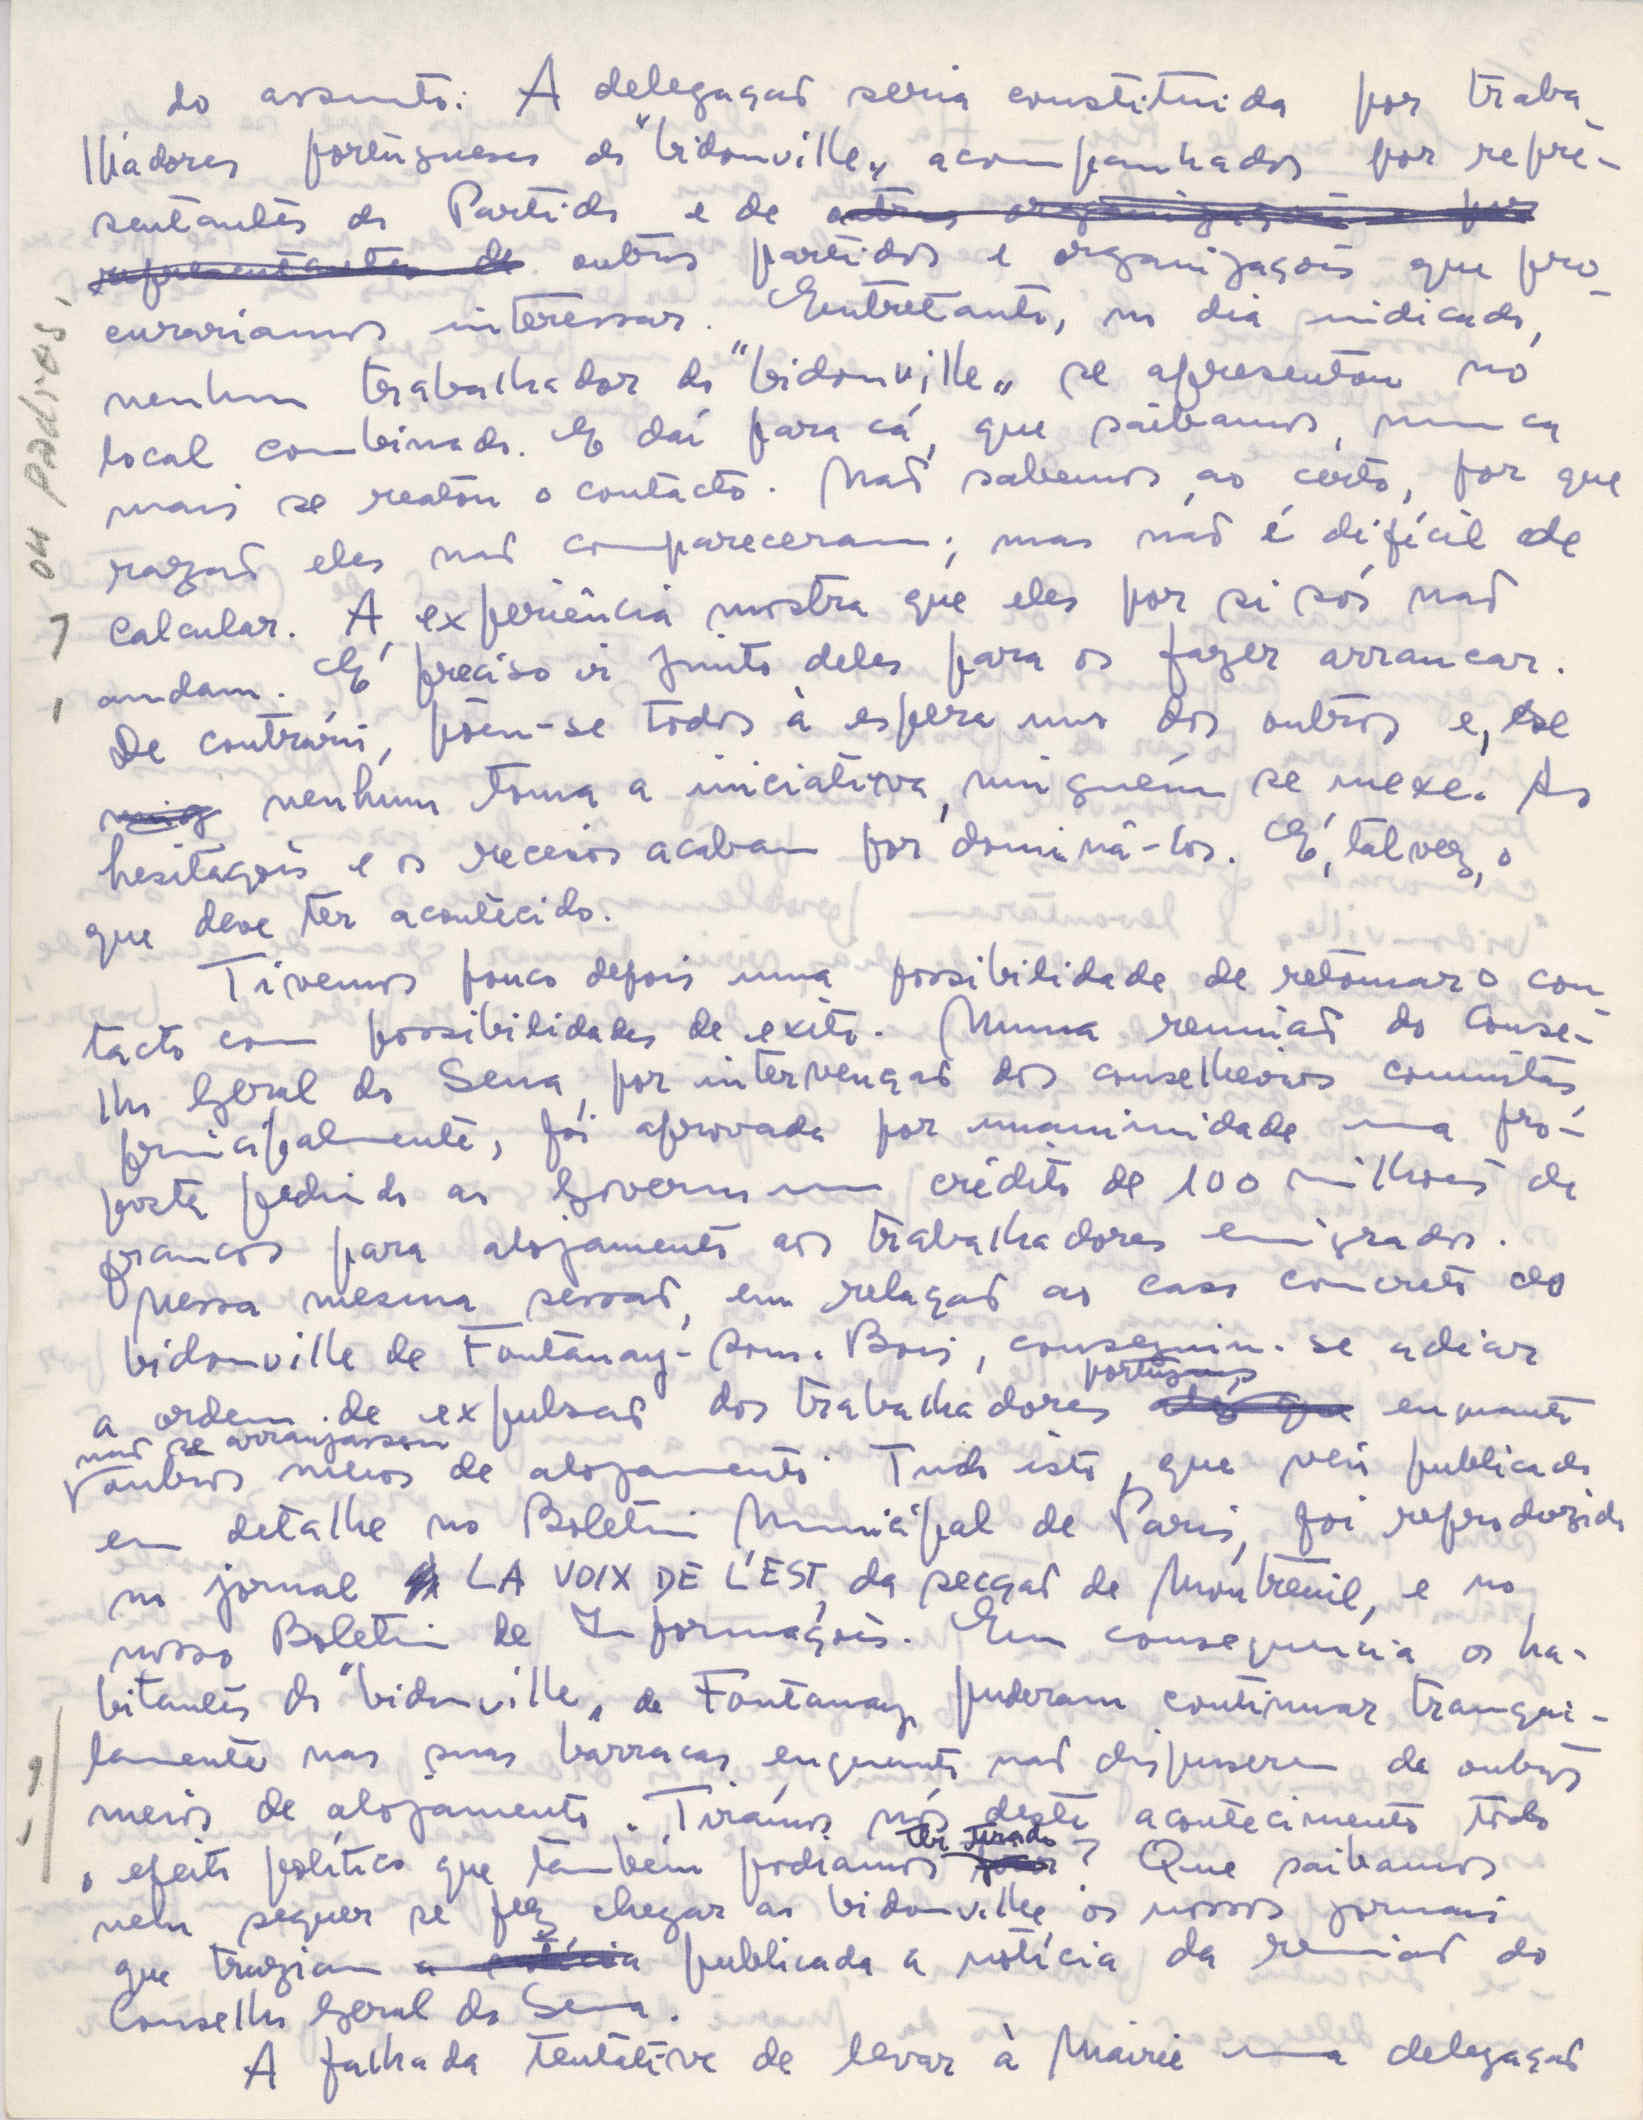 do assunto: A delegação seria constituida por traba
lhadores portugueses do "bidonville" acompanhados por repre-
sentantes do Partido e de outras organizações e por
representantes de outros partidos e organizações que pro-
curariamos interessar. Entretanto, no dia indicado,
nenhum trabalhador do "bidonville" se apresentou no
local combinado. E daí para cá, que saibamos, nunca
mais se reatou o contacto. Não sabemos, ao certo, por que
razão eles não compareceram; mas não é difícil de
calcular. A experiência mostra que eles por si sós não
andam. É preciso ir junto deles para os fazer arrancar.
De contrário, põem-se todos à espera uns dos outros e, se
ning nenhum toma a iniciativa, ninguém se mexe. As
hesitações e os receios acabam por dominá-los. É, talvez, o
que deve ter acontecido.
Tivemos pouco depois uma possibilidade de retomar o con
tacto com possibilidades de exito. Numa reunião do Conse-
lho Geral do Sena, por intervenção dos conselheiros comunistas
principalmente, foi aprovada por unanimidade uma pro-
posta pedindo ao Governo um crédito de 100 milhões de
francos para alojamento aos trabalhadores emigrados.
Nessa mesma sessão, em relação ao caso concreto do
bidonville de Fontanay-sous-Bois, conseguiu-se adiar
a ordem de expulsão dos trabalhadores portugueses enquanto
não se arranjassem
outros meios de alojamento. Tudo isto, que veio publicado
em detalhe no Boletim Municipal de Paris, foi reproduzido
no jornal LA VOIX DE L'EST, da secção de Montreuil, e no
nosso Boletim de Informações. Em consequencia os ha-
bitantes do "bidonville" de Fontanay puderam continuar tranqui-
lamente nas suas barracas enquanto não dispuserem de outros
meios de alojamento. Tirámos nós deste acontecimento todo
o efeito político que também podiamos ter tirado? Que saibamos
nem sequer se fez chegar ao bidonville os nossos jornais
que traziam a notícia publicada a notícia da reunião do
Conselho Geral do Sena.
A falhada tentativa de levar à Mairie uma delegação
ou padres,